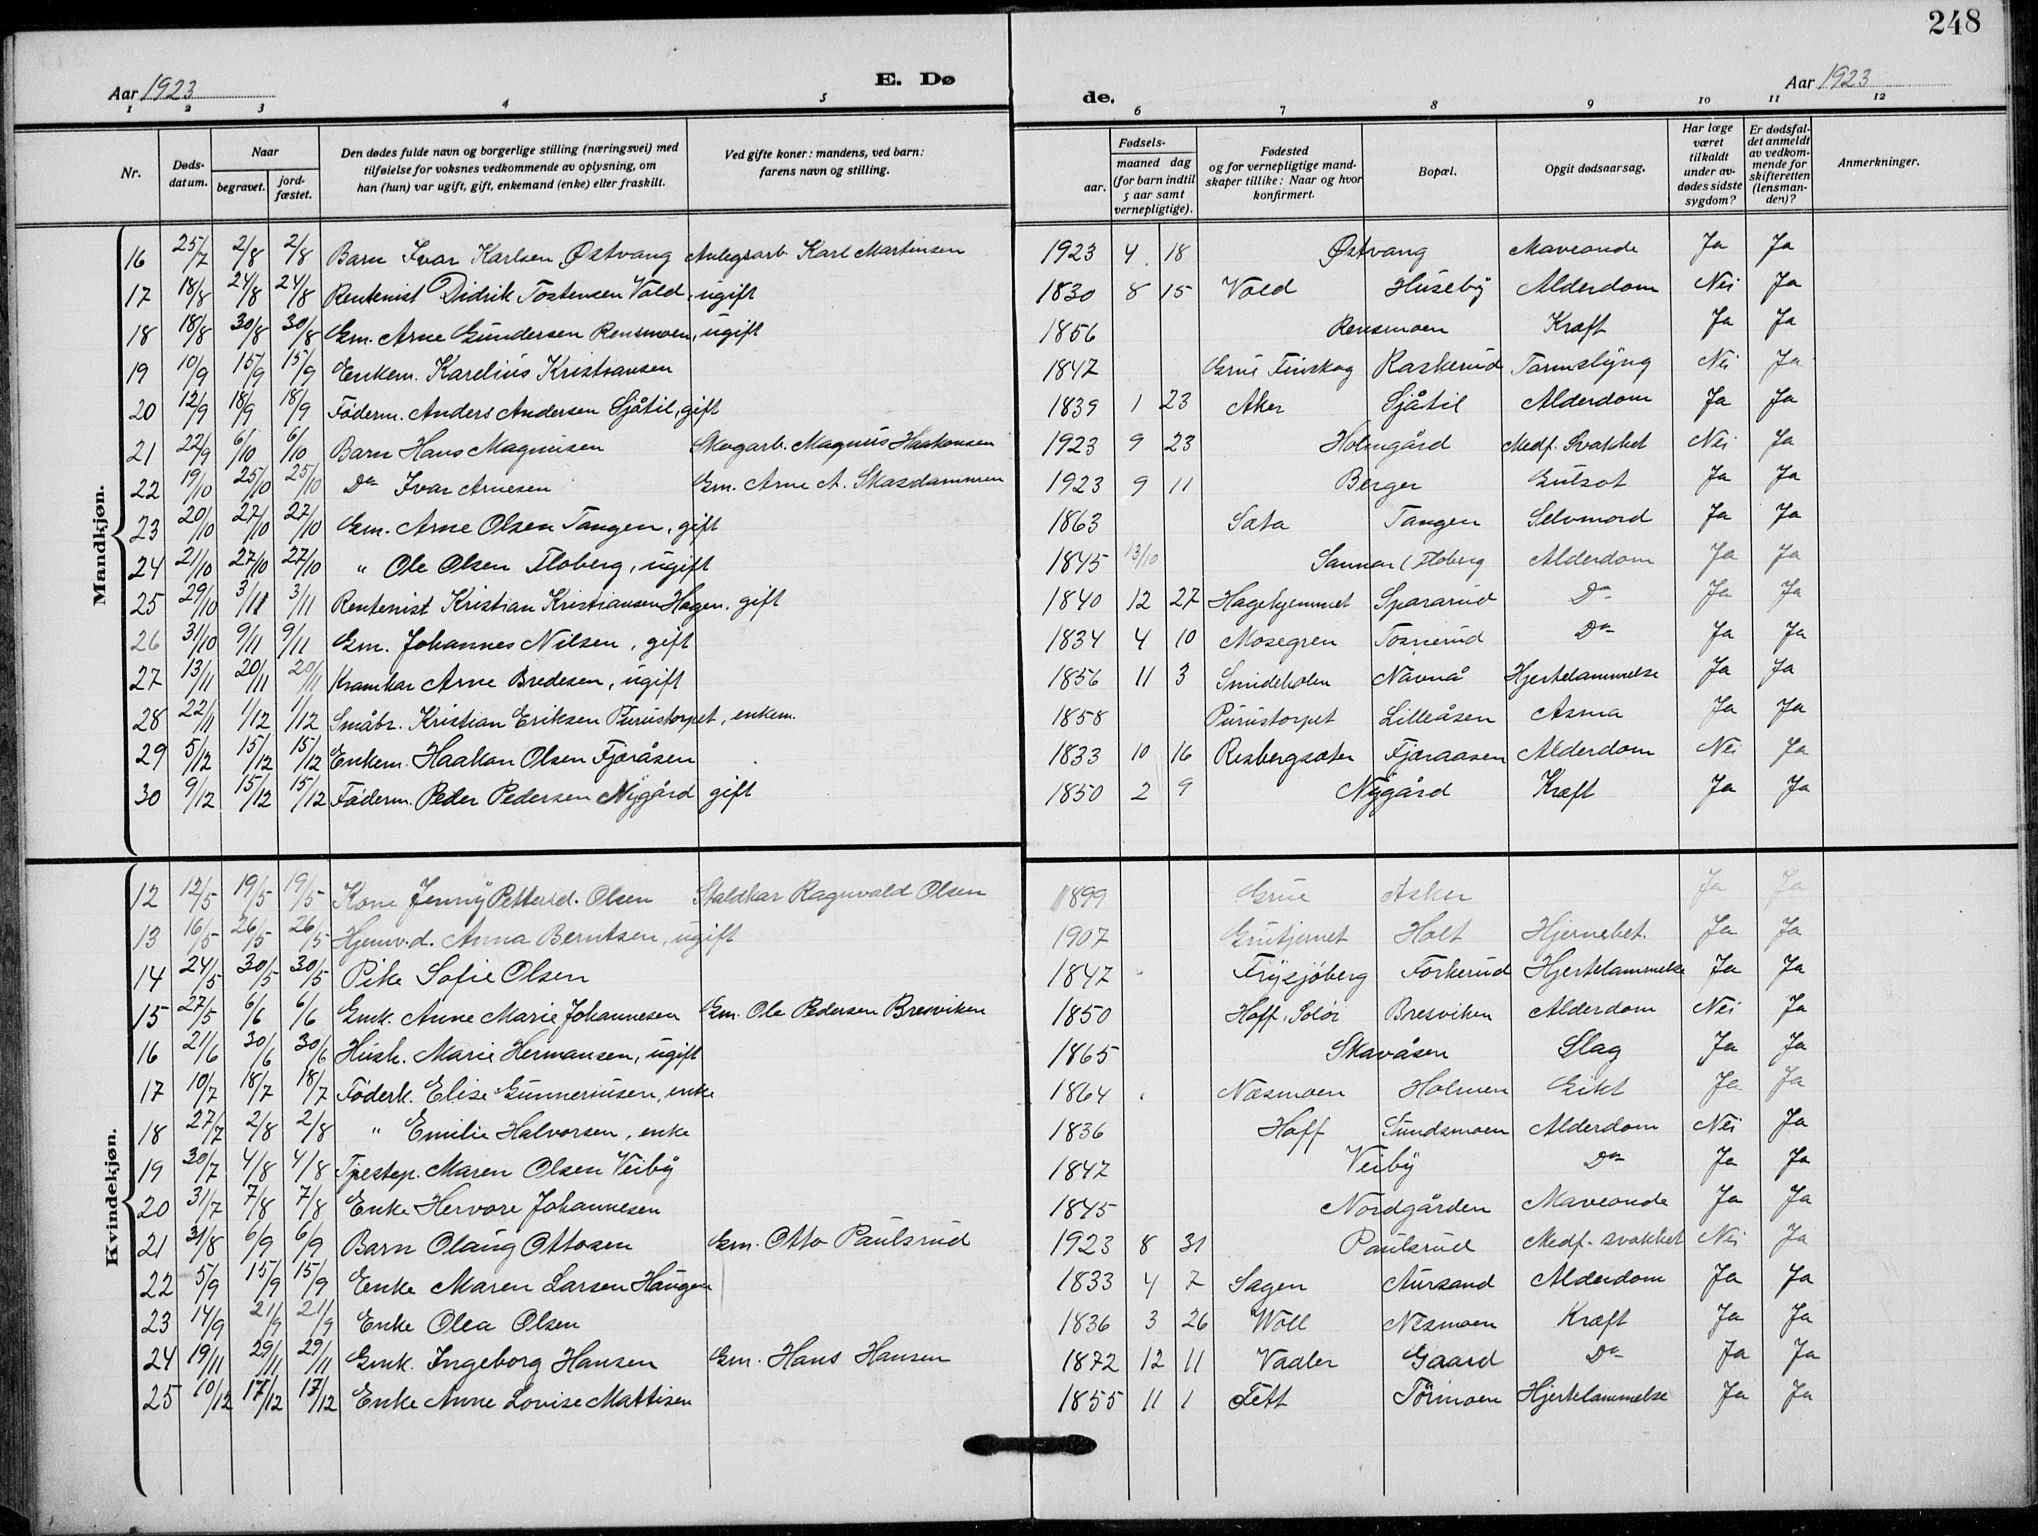 248
Aar 1923 E. Dø de. Aar 1923
1 2 3 4 5 6 7 8 9 10 11 12
Nr. Døds-datum. Naar begravet. jord-fæstet. Den dødes fulde navn og borgerlige stilling (næringsvei) med tilføielse for voksnes vedkommende av oplysning, om han (hun) var ugift, gift, enkemand (enke) eller fraskilt. Ved gifte koner: mandens, ved barn: farens navn og stilling. Fødsels- aar. maaned dag (for barn indtil 5 aar samt vernepligtige). Fødested og for vernepligtige mand-skaper tillike: Naar og hvor konfirmert. Bopæl. Opgit dødsaarsag. Har læge været tilkaldt under av-dødes sidste sygdom? Er dødsfal-det anmeldt av vedkom-mende for skifteretten (lensman-den)? Anmerkninger.
Mandkjøn.
16 25/7 2/8 2/8 Barn Ivar Karlsen Østvang Anlegsarb. Karl Martinsen 1923 4 18 Østvang Maveonde Ja Ja
17 18/8 24/8 24/8 Rentenist Didrik Tostensen Vold, ugift 1830 8 15 Vold Huseby Alderdom Nei Ja
18 18/8 30/8 30/8 Gm. Arne Gundersen Rensmoen, ugift 1856 Rensmoen Kræft Ja Ja
19 10/9 15/9 15/9 Enkem. Karelius Kristiansen 1847 Grue Finskog Raskerud Tarmslyng Nei Ja
20 12/9 18/9 18/9 Föderm. Anders Andersen Sjåtil, gift 1839 1 23 Aker Sjåtil Alderdom Ja Ja
21 22/9 6/10 6/10 Barn Hans Magnusen Skogarb. Magnus Haakonsen 1923 9 23 Holmgård Medf. Svakhet Nei Ja
22 19/10 25/10 25/10 Do Ivar Arnesen Gm. Arne A. Skasdammen 1923 9 11 Berger Gulsot Ja Ja
23 20/10 27/10 27/10 Gm. Arne Olsen Tangen, gift 1863 Sata Tangen Selvmord Ja Ja
24 21/10 27/10 27/10 " Ole Olsen Floberg, ugift 1845 13/10 Sannar / Floberg Alderdom Ja Ja
25 29/10 3/11 3/11 Rentenist Kristian Kristiansen Hagen, gift 1840 12 27 Hagehjemmet Spararud Do Ja Ja
26 31/10 9/11 9/11 Gm. Johannes Nilsen, gift 1834 4 10 Mosegren Tosnerud Do Ja Ja
27 13/11 20/11 20/11 Kramkar Arne Bredesen, ugift 1856 11 3 Smideholen Navnå Hjertelammelse Ja Ja
28 22/11 1/12 1/12 Småbr. Kristian Eriksen Purustorpet, enkem. 1858 Purustorpet Lilleåsen Asma Ja Ja
29 5/12 15/12 15/12 Enkem. Haakan Olsen Fjæråsen 1833 10 16 Risbergsæter Fjæraasen Alderdom Nei Ja
30 9/12 15/12 15/12 Föderm. Peder Pedersen Nygård gift 1850 2 9 Nygård Kræft Ja Ja
Kvindekjøn.
12 12/5 19/5 19/5 Kone Jenny Pettersd. Olsen Staldkar Ragnvald Olsen 1899 Grue Asker Ja Ja
13 16/5 26/5 26/5 Hjemv.d. Anna Berntsen, ugift 1907 Grutjernet Holt Hjernebet. Ja Ja
14 24/5 30/5 30/5 Pike Sofie Olsen 1847 Frysjöberg Forkerud Hjertelammelse Ja Ja
15 27/5 6/6 6/6 Gmk. Anne Marie Johannesen Gm. Ole Pedersen Bresviken 1850 Hoff, Solör Bresviken Alderdom Nei Ja
16 21/6 30/6 30/6 Hush. Marie Hermansen, ugift 1865 Skavåsen Slag Ja Ja
17 10/7 18/7 18/7 Föderk. Elise Gunneriusen, enke 1864 Næsmoen Holmen Gikt Ja Ja
18 27/7 2/8 2/8 " Emilie Halvorsen, enke 1836 Hoff Sundsmoen Alderdom Nei Ja
19 30/7 4/8 4/8 Maren Olsen Veiby 1847 Veiby Do Ja Ja
20 31/7 7/8 7/8 Enke Hervore Johannesen 1845 Nordgården Maveonde Ja Ja
21 31/8 6/9 6/9 Barn Olaug Ottosen Gm. Otto Paulsrud 1923 8 31 Paulsrud Medf. svakhet Nei Ja
22 5/9 15/9 15/9 Enke Maren Larsen Haugen 1833 4 7 Sagen Aursand Alderdom Ja Ja
23 14/9 21/9 21/9 Enke Olea Olsen 1836 3 26 Woll Nesmoen Kræft Ja Ja
24 19/11 29/11 29/11 Gmk. Ingeborg Hansen Gm. Hans Hansen 1872 12 11 Vaaler Gaard Do Ja Ja
25 10/12 17/12 17/12 Enke Anne Lovise Mattisen 1855 11 1 Fett Törmoen Hjertelammelse Ja Ja